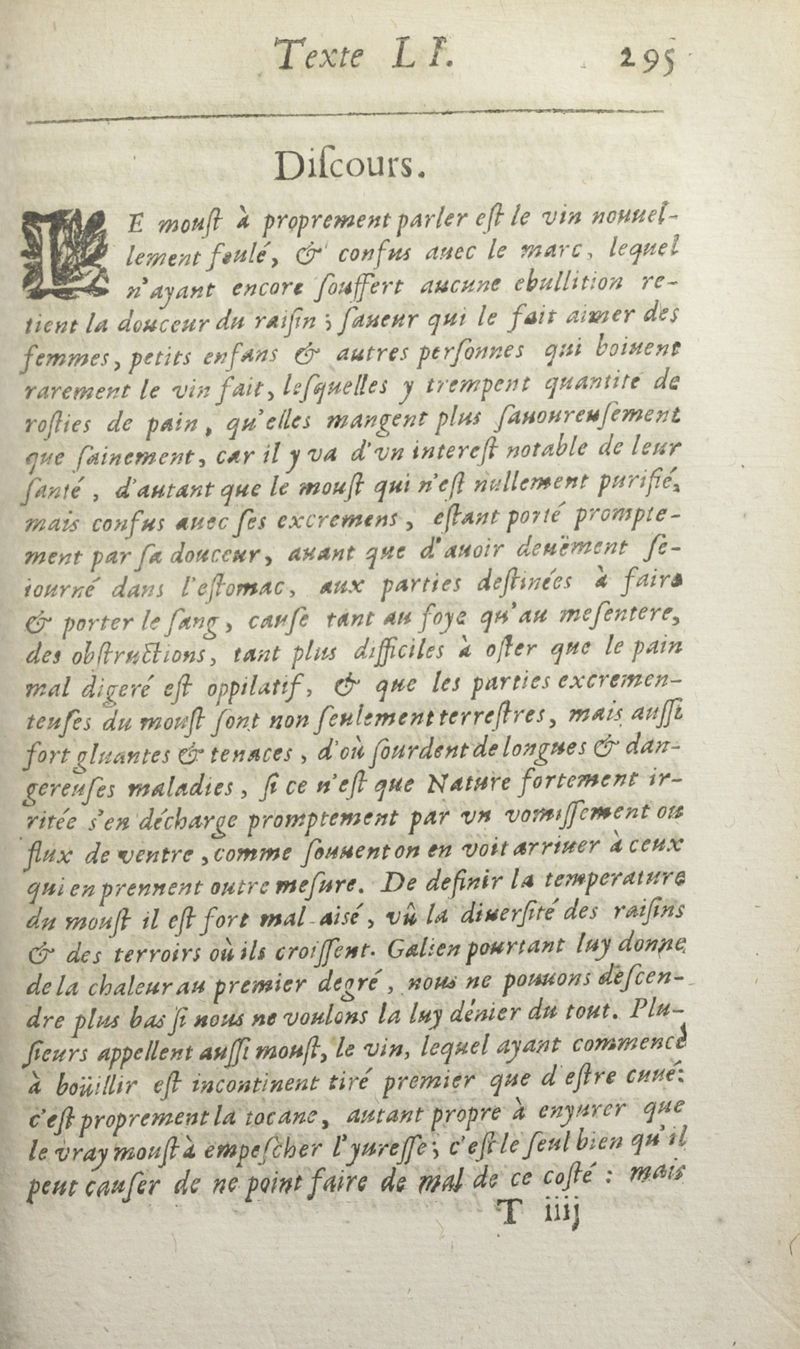 Texte LI. 295
Diſcours.
LE mouſt à proprement parler eſt le vin nouuel-
lement foulé, & confus auec le marc, lequel
n'ayant encore ſouffert aucune ebullition re-
tient la douceur du raiſin ; ſaueur qui le fait aimer des
femmes, petits enfans & autres perſonnes qui boiuent
rarement le vin fait, leſquelles y trempent quantité de
roſties de pain, qu'elles mangent plus ſauoureuſement
que ſainement, car il y va d'vn intereſt notable de leur
ſanté, d'autant que le mouſt qui n'eſt nullement purifié,
mais confus auec ſes excremens, eſtant porté prompte-
ment par ſa douceur, auant que d'auoir deuëment ſe-
iourné dans l'eſtomac, aux parties deſtinées à faire
& porter le ſang, cauſe tant au foye qu'au meſentere,
des obſtructions, tant plus difficiles à oſter que le pain
mal digeré eſt oppilatif, & que les parties excremen-
teuſes du mouſt ſont non ſeulement terreſtres, mais auſſi
fort gluantes & tenaces, d'où ſourdent de longues & dan-
gereuſes maladies, ſi ce n'eſt que Nature fortement ir-
ritée s'en décharge promptement par vn vomiſſement ou
flux de ventre, comme ſouuent on en voit arriuer à ceux
qui en prennent outre meſure. De definir la temperature
du mouſt il eſt fort mal-aisé, vû la diuerſité des raiſins
& des terroirs où ils croiſſent. Galien pourtant luy donne
de la chaleur au premier degré, nous ne pouuons deſcen-
dre plus bas ſi nous ne voulons la luy dénier du tout. Plu-
ſieurs appellent auſſi mouſt, le vin, lequel ayant commencé
à boüillir eſt incontinent tiré premier que d'eſtre cuué:
c'eſt proprement la tocane, autant propre à enyurer que
le vray mouſt à empeſcher l'yureſſe; c'eſt le ſeul bien qu'il
peut cauſer de ne point faire de mal de ce coſté : mais
T iiij